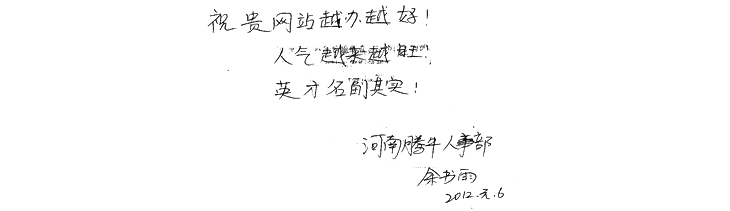 祝贵网站越办越好!
人气越来越旺!
英才名副其实!
河南腾牛人事部
余书雨
2012.元.6